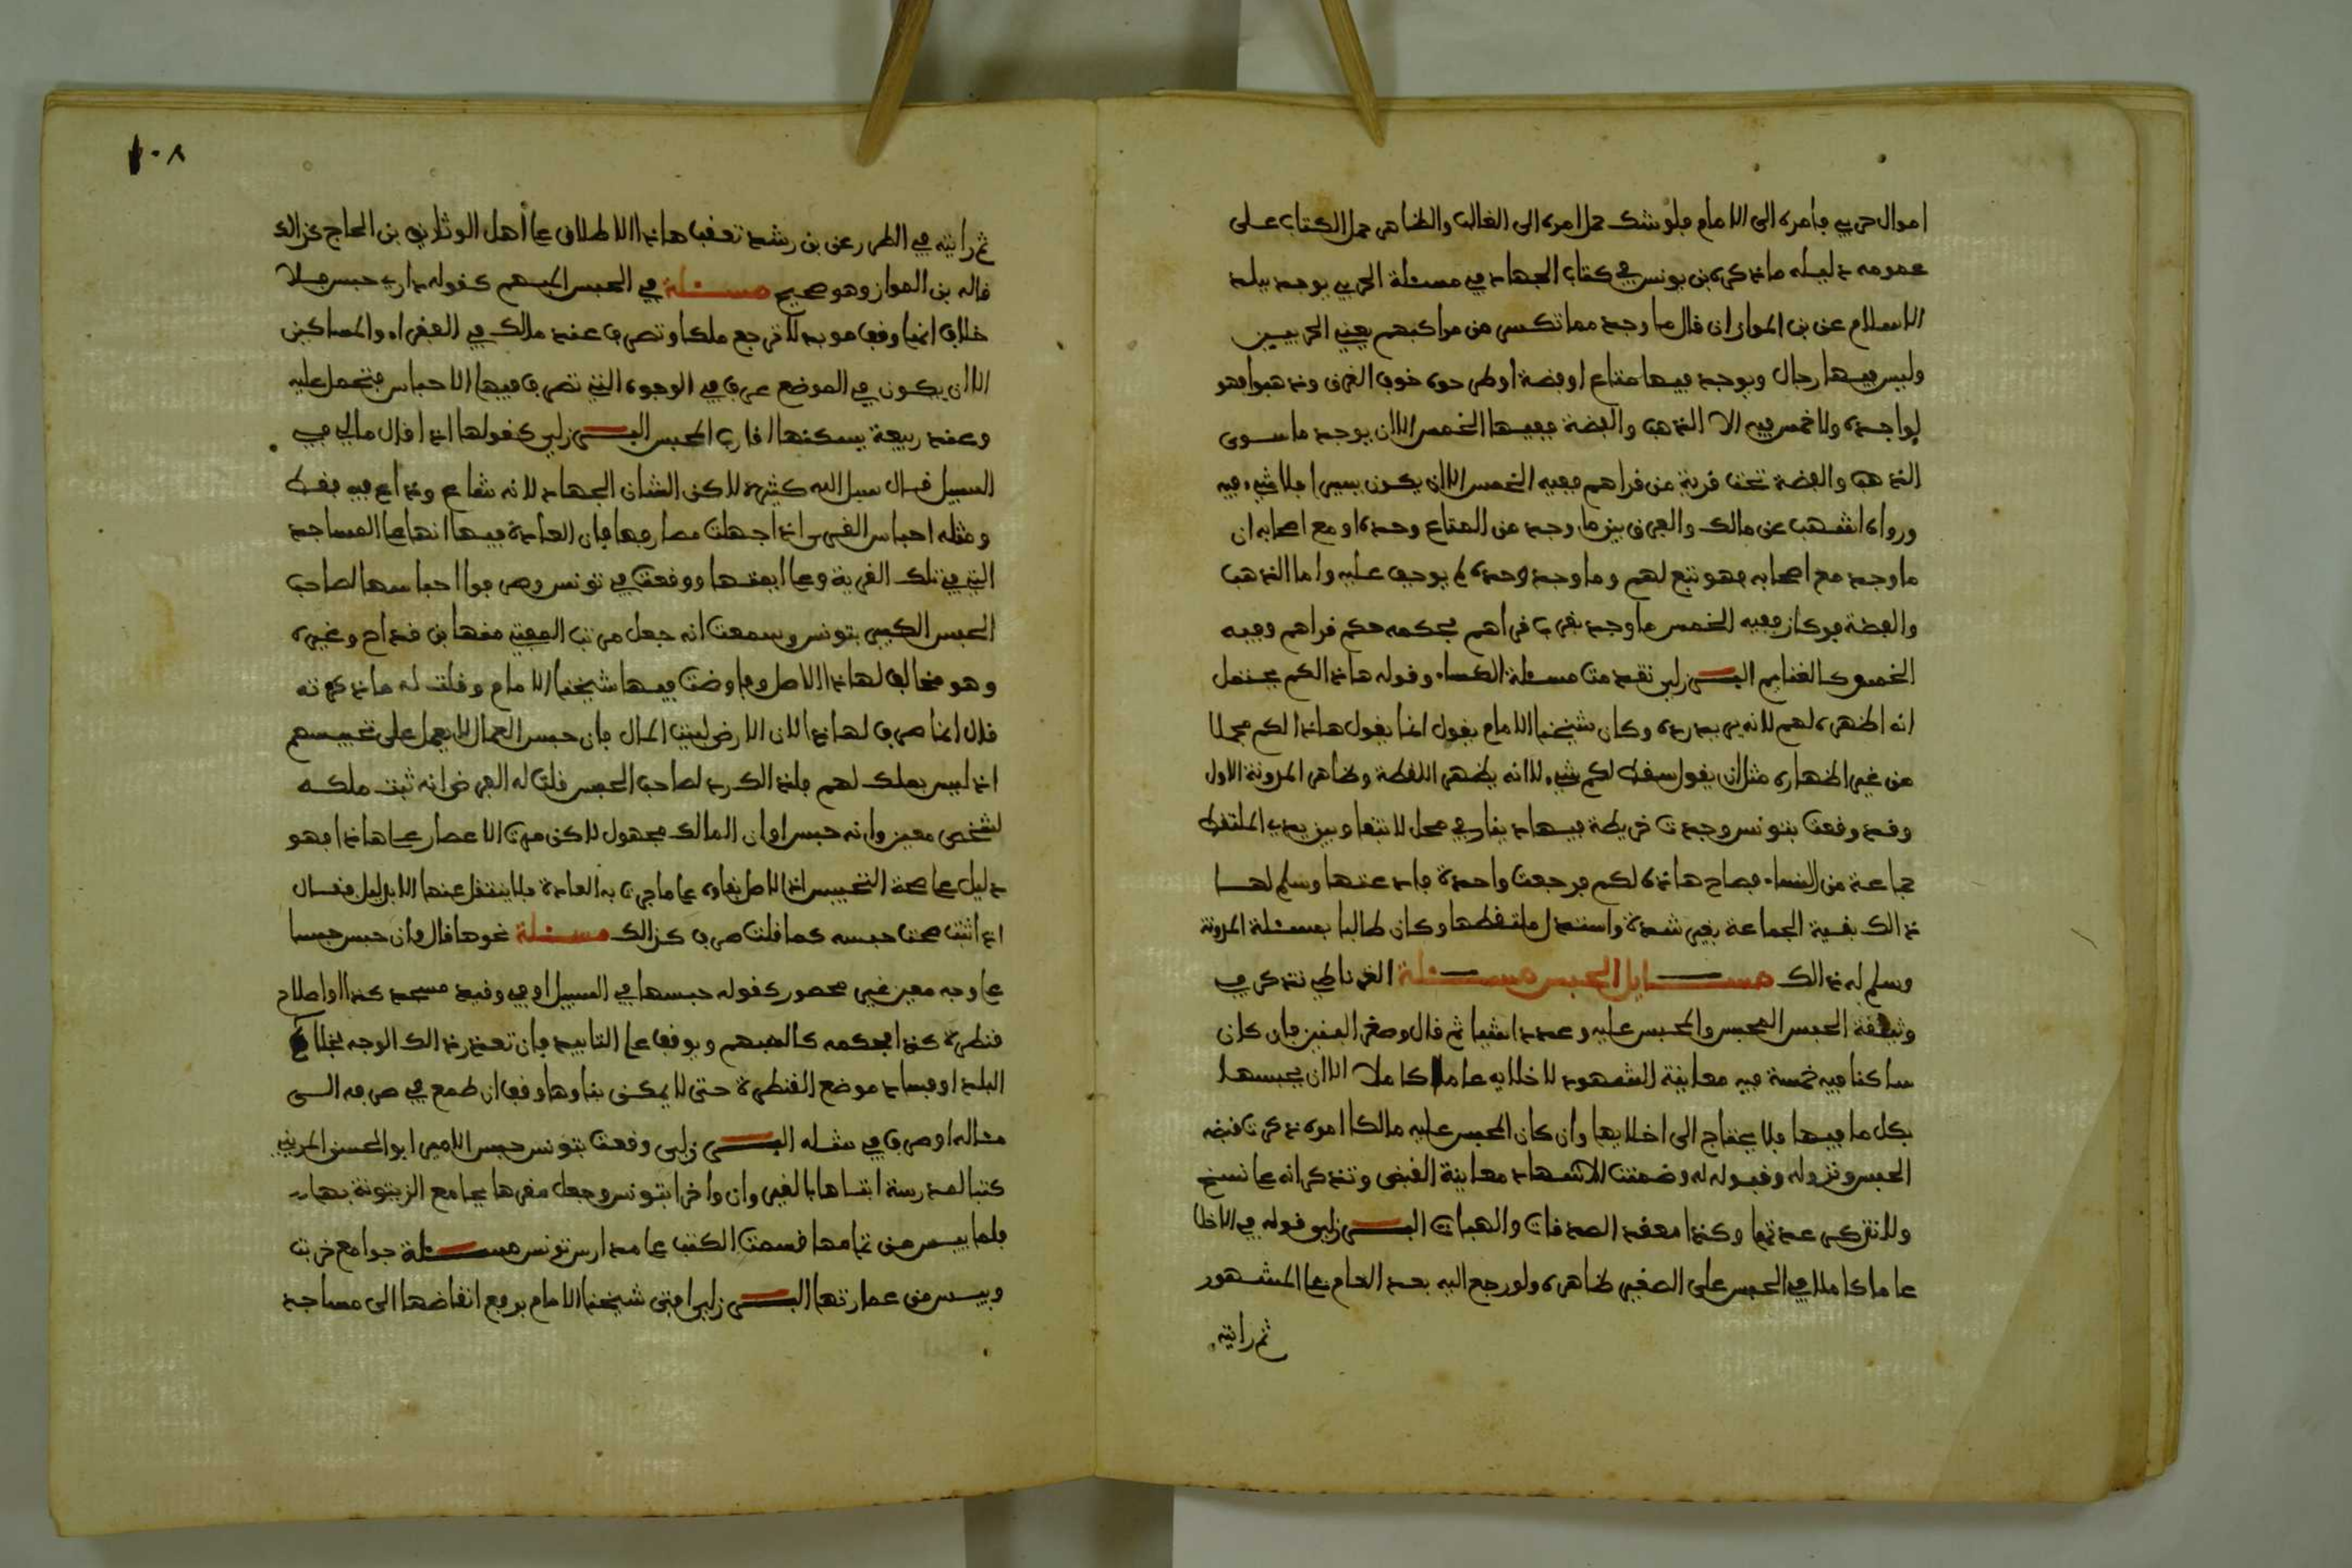 اموال حربي فأمره الى الامام فلو شك حمل امره الى الغالب والظاهر حمل الكتاب على
عمومه دليله ما ذكره بن يونس في كتاب الجهاد في مسئلة الحربي يوجد ببلد
الاسلام عن بن المواز ان قال ما وجد مما تكسر من مراكبهم يعني الحربيين
وليس فيها رجال ويوجد فيها متاع او فضة او طرحوه خوف الغرق وذهبوا فهو
لواجده ولا خمس فيه الا الذهب والفضة ففيها الخمس الا ان يوجد ما سوى
الذهب والفضة تحت قرية من قراهم ففيه الخمس الا ان يكون يسيرا فلا شيء فيه
ورواه اشهب عن مالك والفرق بين ما وجد من المتاع وحده او مع اصحابه ان
ما وجد مع اصحابه فهو تبع لهم وما وجد وحده لم يوجف عليه واما الذهب
والفضة فركاز ففيه الخمس ما وجد بقرب قراهم فحكمه حكم قراهم وفيه
الخمس كالغنايم البـــرزلي تقدمت مسئلة الكساء وقوله هاذا لكم يحتمل
انه اظهره لهم لانه يريد رده وكان شيخنا الامام يقول انما يقول هاذا لكم مجملا
من غير اظهاره مثل ان يقول سقط لكم شيء لانه يظهر اللقطة وظاهر المدونة الاول
وقد وقعت بتونس وجدت خريطة فيها دينار في محل لانتها وبين يدي الملتقط
جماعة من النساء فصاح هاذه لكم فرجعت واحدة فادعتها وسلم لها
ذالك بقية الجماعة بغير شدة واستدل ملتقطها وكان طالبا بمسئلة المدونة
وسلم له ذالك مســايل الحبس مســئلة الغرناطي تذكر في
وثيقة الحبس المحبس والمحبس عليه وعدد اشيا ثم قال وصغر البنين فان كان
ساكنا فيه خمسة فيه معاينة الشهود لاخلايه عاما كاملا الا ان يحبسها
بكل ما فيها فلا يحتاج الى اخلايها وان كان المحبس عليه مالكا امره ذكرت قبضه
الحبس ونزوله وقبوله له وضمنت الاشهاد معاينة القبض وتذكر انه على نسخ
ولا تترك عدتها وكذا معقد الصدقات والهبات البـــرزلي قوله في الاخلا
عاما كاملا في الحبس على الصغير ظاهره ولو رجع اليه بعد العام على المشهور
ثم رايته
١٠٨
ثم رايته في الطرر عن بن رشد تعقب هاذا الاطلاق على أهل الوثايق بن الحاج كذالك
قاله بن المواز وهو صحيح مســئلة في الحبس المبهم كقوله داري حبس فلا
خلاف انها وقف موبد لا ترجع ملكا وتصرف عند مالك في الفقراء والمساكين
الا ان يكون في الموضع عرف في الوجوه التي تصرف فيها الاحباس فتحمل عليه
وعند ربيعة يسكنها اقارب المحبس البـــرزلي كقولها اذا قال مالي في
السبيل قال سبل الله كثيرة لاكن الشان الجهاد لانه شاع وذاع فيه فقط
ومثله احباس القرى اذا جهلت مصارفها فان العادة فيها انها على المساجد
التي في تلك القرية وعلى ايمتها ووقعت في تونس وصرفوا احباسها لصاحب
الحبس الكبير بتونس وسمعت انه جعل مرتب المفتي منها بن قداح وغيره
وهو مخالف لهاذا الاصل وفاوضت فيها شيخنا الامام وقلت له ما ذكرته
قال انما صرف لهاذا لان الارض لبيت المال فان حبس العمال لا يعمل على تحبيسهم
اذ ليس بملك لهم فلذالك رد لصاحب الحبس قلت له الفرض انه ثبت ملكه
لشخص معين وانه حبس او ان المالك مجهول لاكن مرت الاعصار على هاذا فهو
دليل على صحة التحبيس اذ الاصل بقاوه على ما جرت به العادة فلا ينتقل عنها الا بدليل فقال
اذا ثبت صحت حبسه كما قلت صرف كذالك مســئلة نحوها قال وان حبس حبسا
على وجه معين غير محصور كقوله حبسها في السبيل او في وقيد مسجد كذا او اصلاح
قنطرة كذا فحكمه كالمبهم ويوقف على التابيد فان تعذر ذالك الوجه بخلاء
البلد او فساد موضع القنطرة حتى لا يمكن بناوها وقف ان طمع في صرفه الى
مثاله او صرف في مثله البـــرزلي وقعت بتونس حبس الامير ابو الحسن المريني
كتبا لمدرسة ابتناها بالقيروان واخرا بتونس وجعل مقرها بجامع الزيتونة بها
فلما يبس من تمامها قسمت الكتب على مدارس تونس مســئلة جوامع خربت
وييس من عمارتها البـــرزلي افتى شيخنا الامام برفع انقاضها الى مساجد